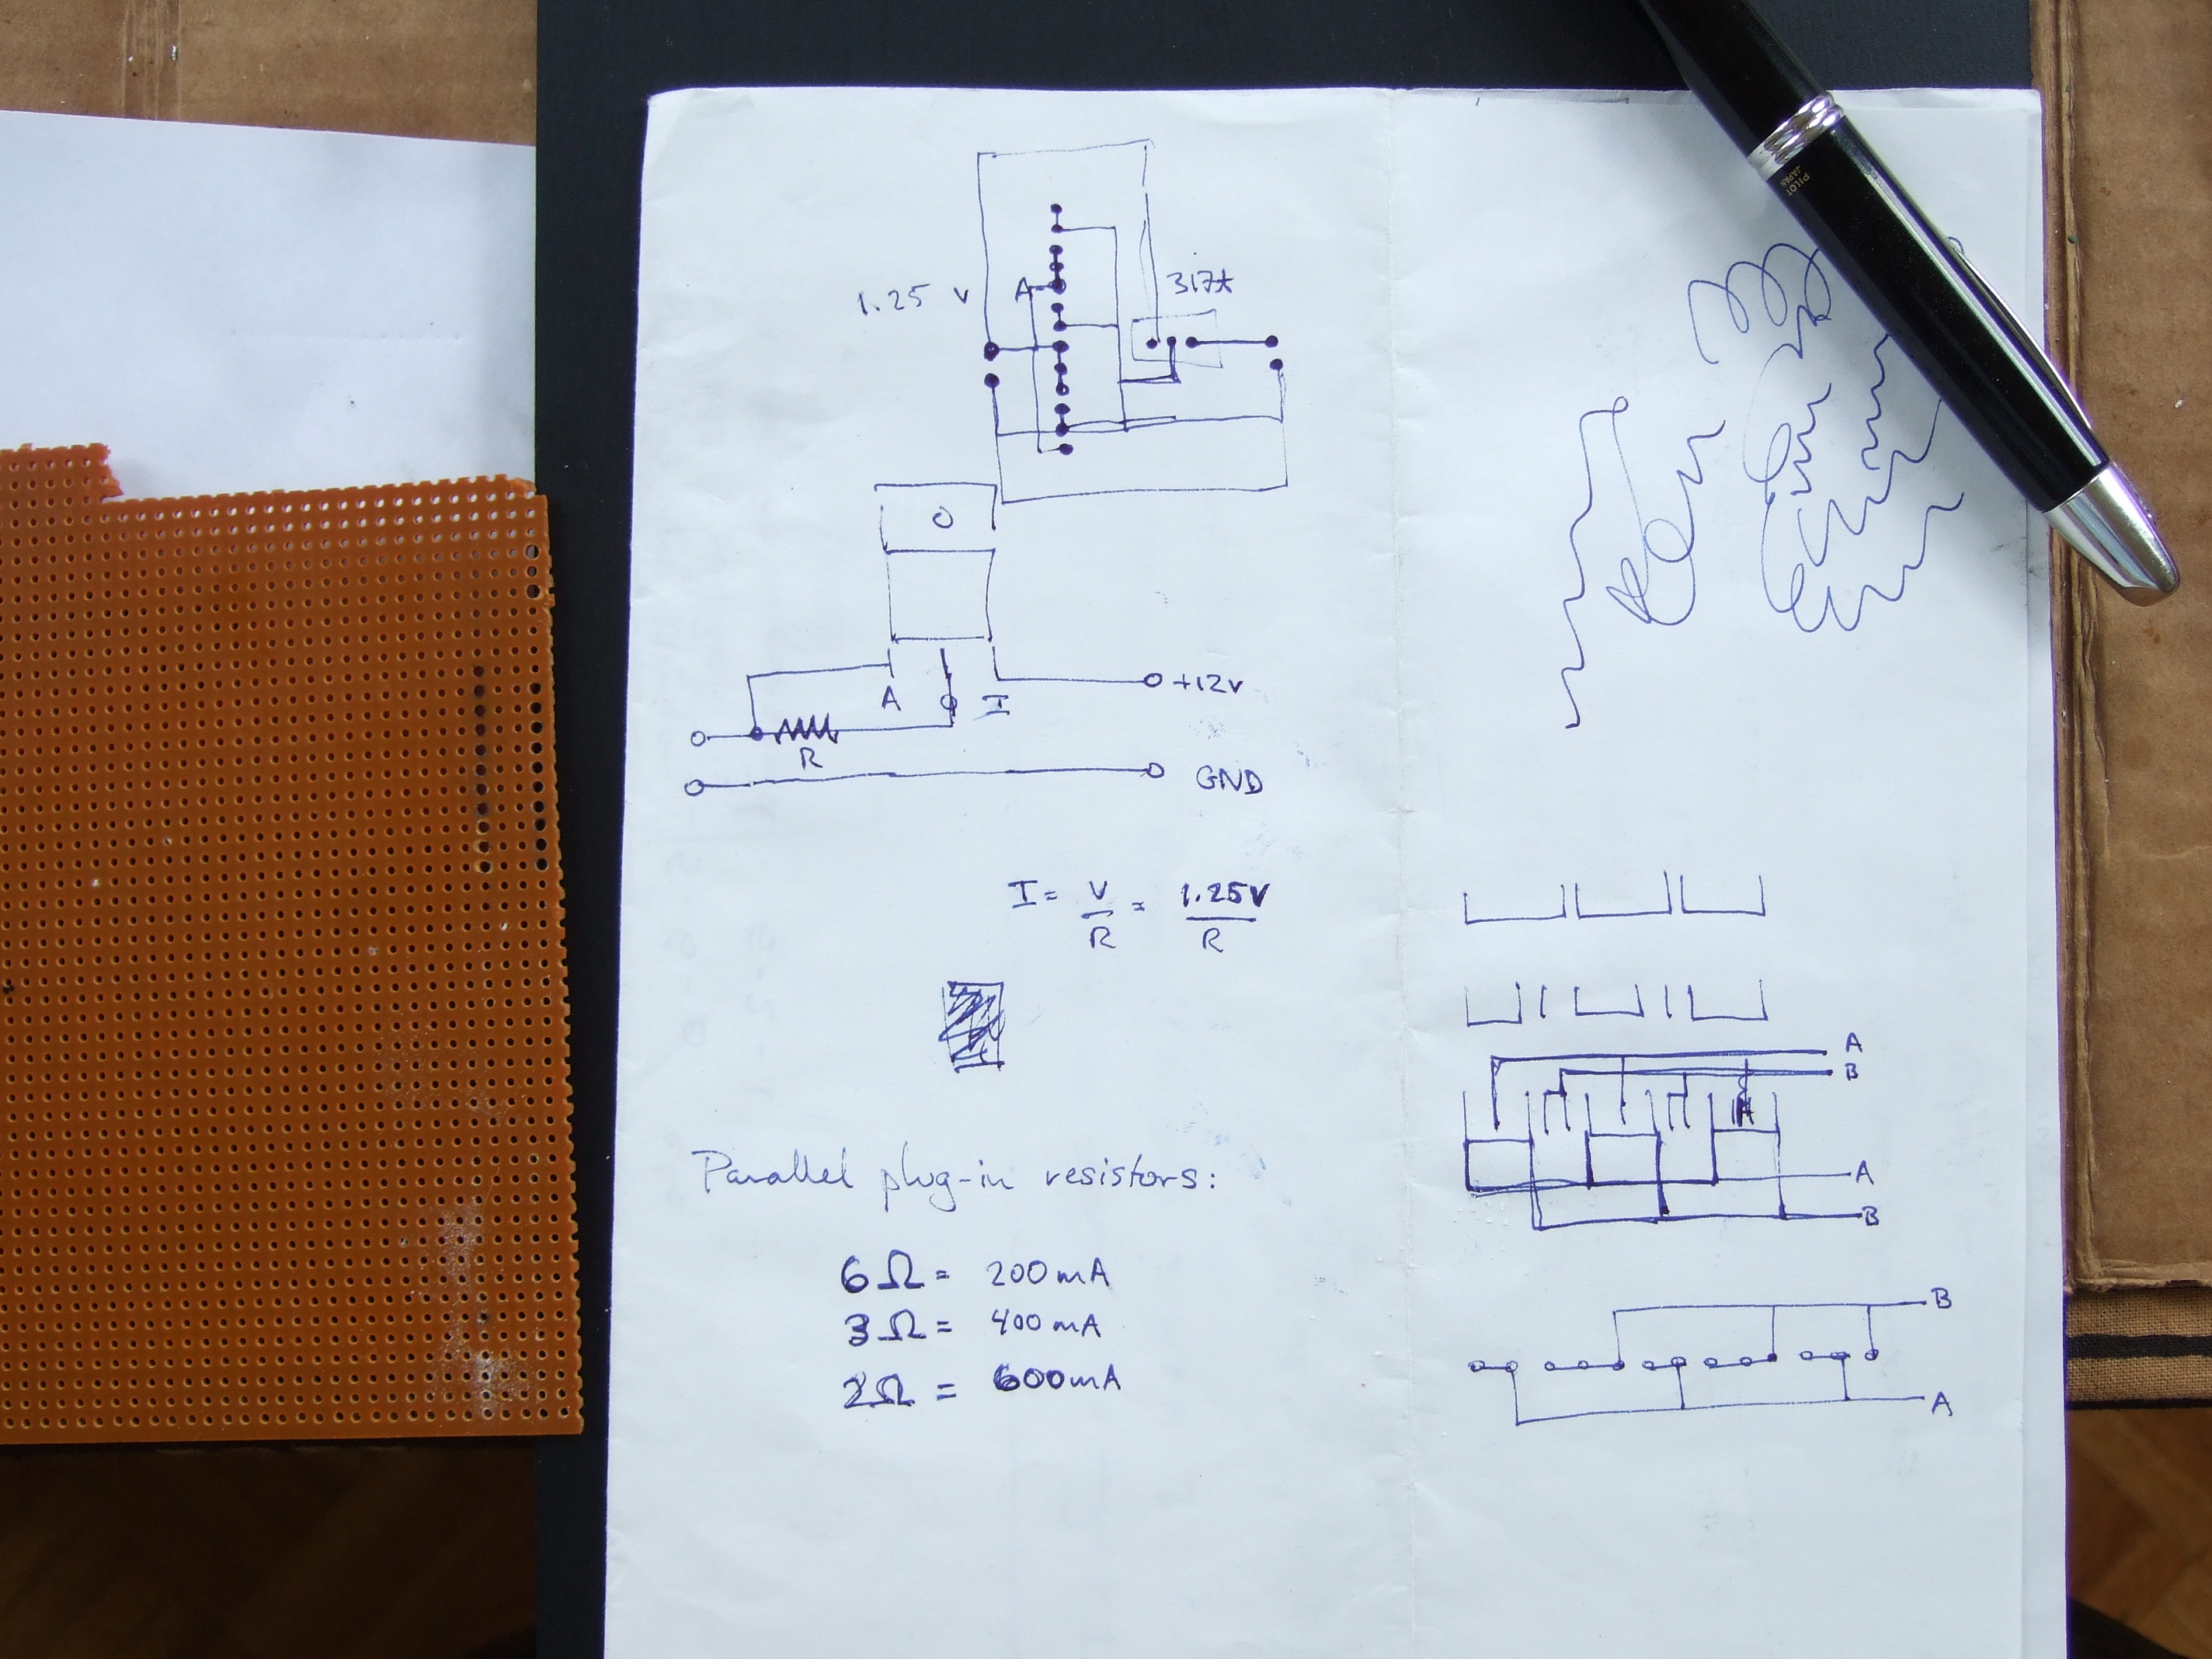 1.25 V A 317t
A O I +12V
R
GND
I = V/R = 1.25V/R
Parallel plug-in resistors:
6Ω = 200mA
3Ω = 400mA
2Ω = 600mA
A
B
A
B
B
A
PILOT
JAPAN